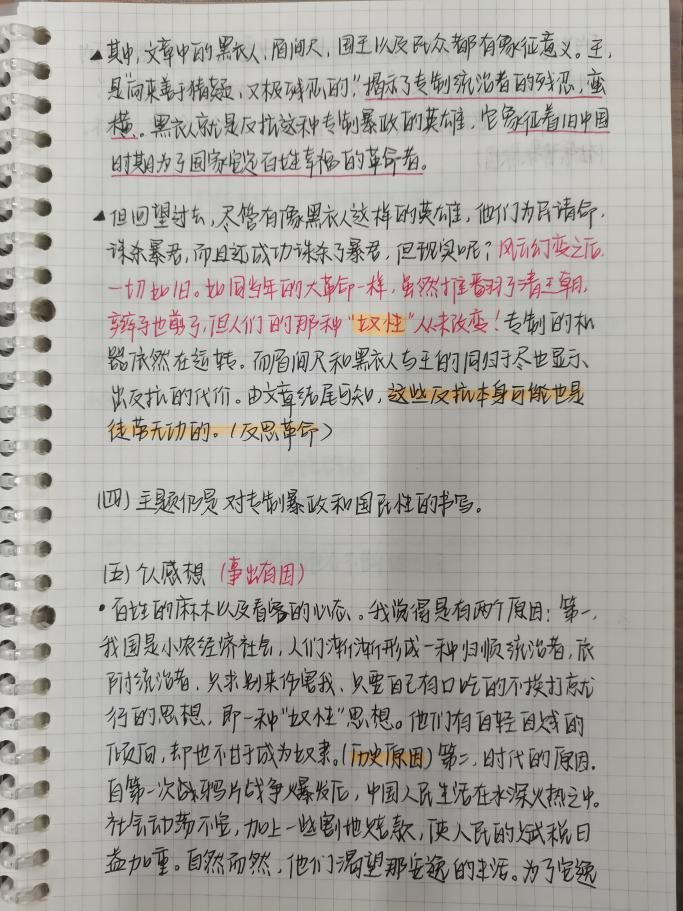 ▲其中,文章中的黑衣人,眉间尺,国王以及民众都有象征意义。王,
是"向来善于猜疑,又极残忍的",揭示了专制统治者的残忍,蛮
横。黑衣人就是反抗这种专制暴政的英雄,它象征着旧中国
时期为了国家安定百姓幸福的革命者。
▲但回望过去,尽管有像黑衣人这样的英雄,他们为民请命,
诛杀暴君,而且还成功诛杀了暴君,但现实呢?风云幻变之后,
一切如旧。如同当年的大革命一样,虽然推翻了清王朝,
辫子也剪了,但人们的那种"奴性"从未改变!专制的机
器依然在运转。而眉间尺和黑衣人与王的同归于尽也显示
出反抗的代价。由文章结尾可知,这些反抗本身可能也是
徒劳无功的。(反思革命)
(四)主题仍是对专制暴政和国民性的书写。
(五)个人感想(事出有因)
•百姓的麻木以及看客的心态。我觉得是有两个原因:第一,
我国是小农经济社会,人们渐渐形成一种归顺统治者,依
附统治者、只求别来伤害我、只要自己有口吃的不挨打就
行的思想,即一种"奴性"思想。他们有自轻自贱的
倾向,却也不甘于成为奴隶。(历史原因)第二,时代的原因.
自第一次鸦片战争爆发后,中国人民生活在水深火热之中。
社会动荡不安,加上一些割地赔款,使人民的赋税日
益加重。自然而然,他们渴望那安逸的生活。为了安逸